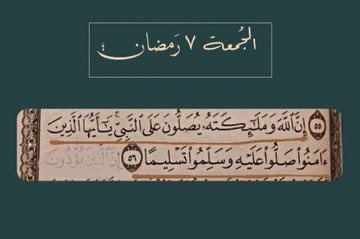 الجُمعة ٧ رَمضان ؛
٥٥ إِنَّ ٱللَّهَ وَمَلَٰٓئِكَتَهُۥ يُصَلُّونَ عَلَى ٱلنَّبِيِّۚ يَٰٓأَيُّهَا ٱلَّذِينَ
ءَامَنُوا۟ صَلُّوا۟ عَلَيْهِ وَسَلِّمُوا۟ تَسْلِيمًا ٥٦ إِنَّ ٱلَّذِينَ يُؤْذُونَ